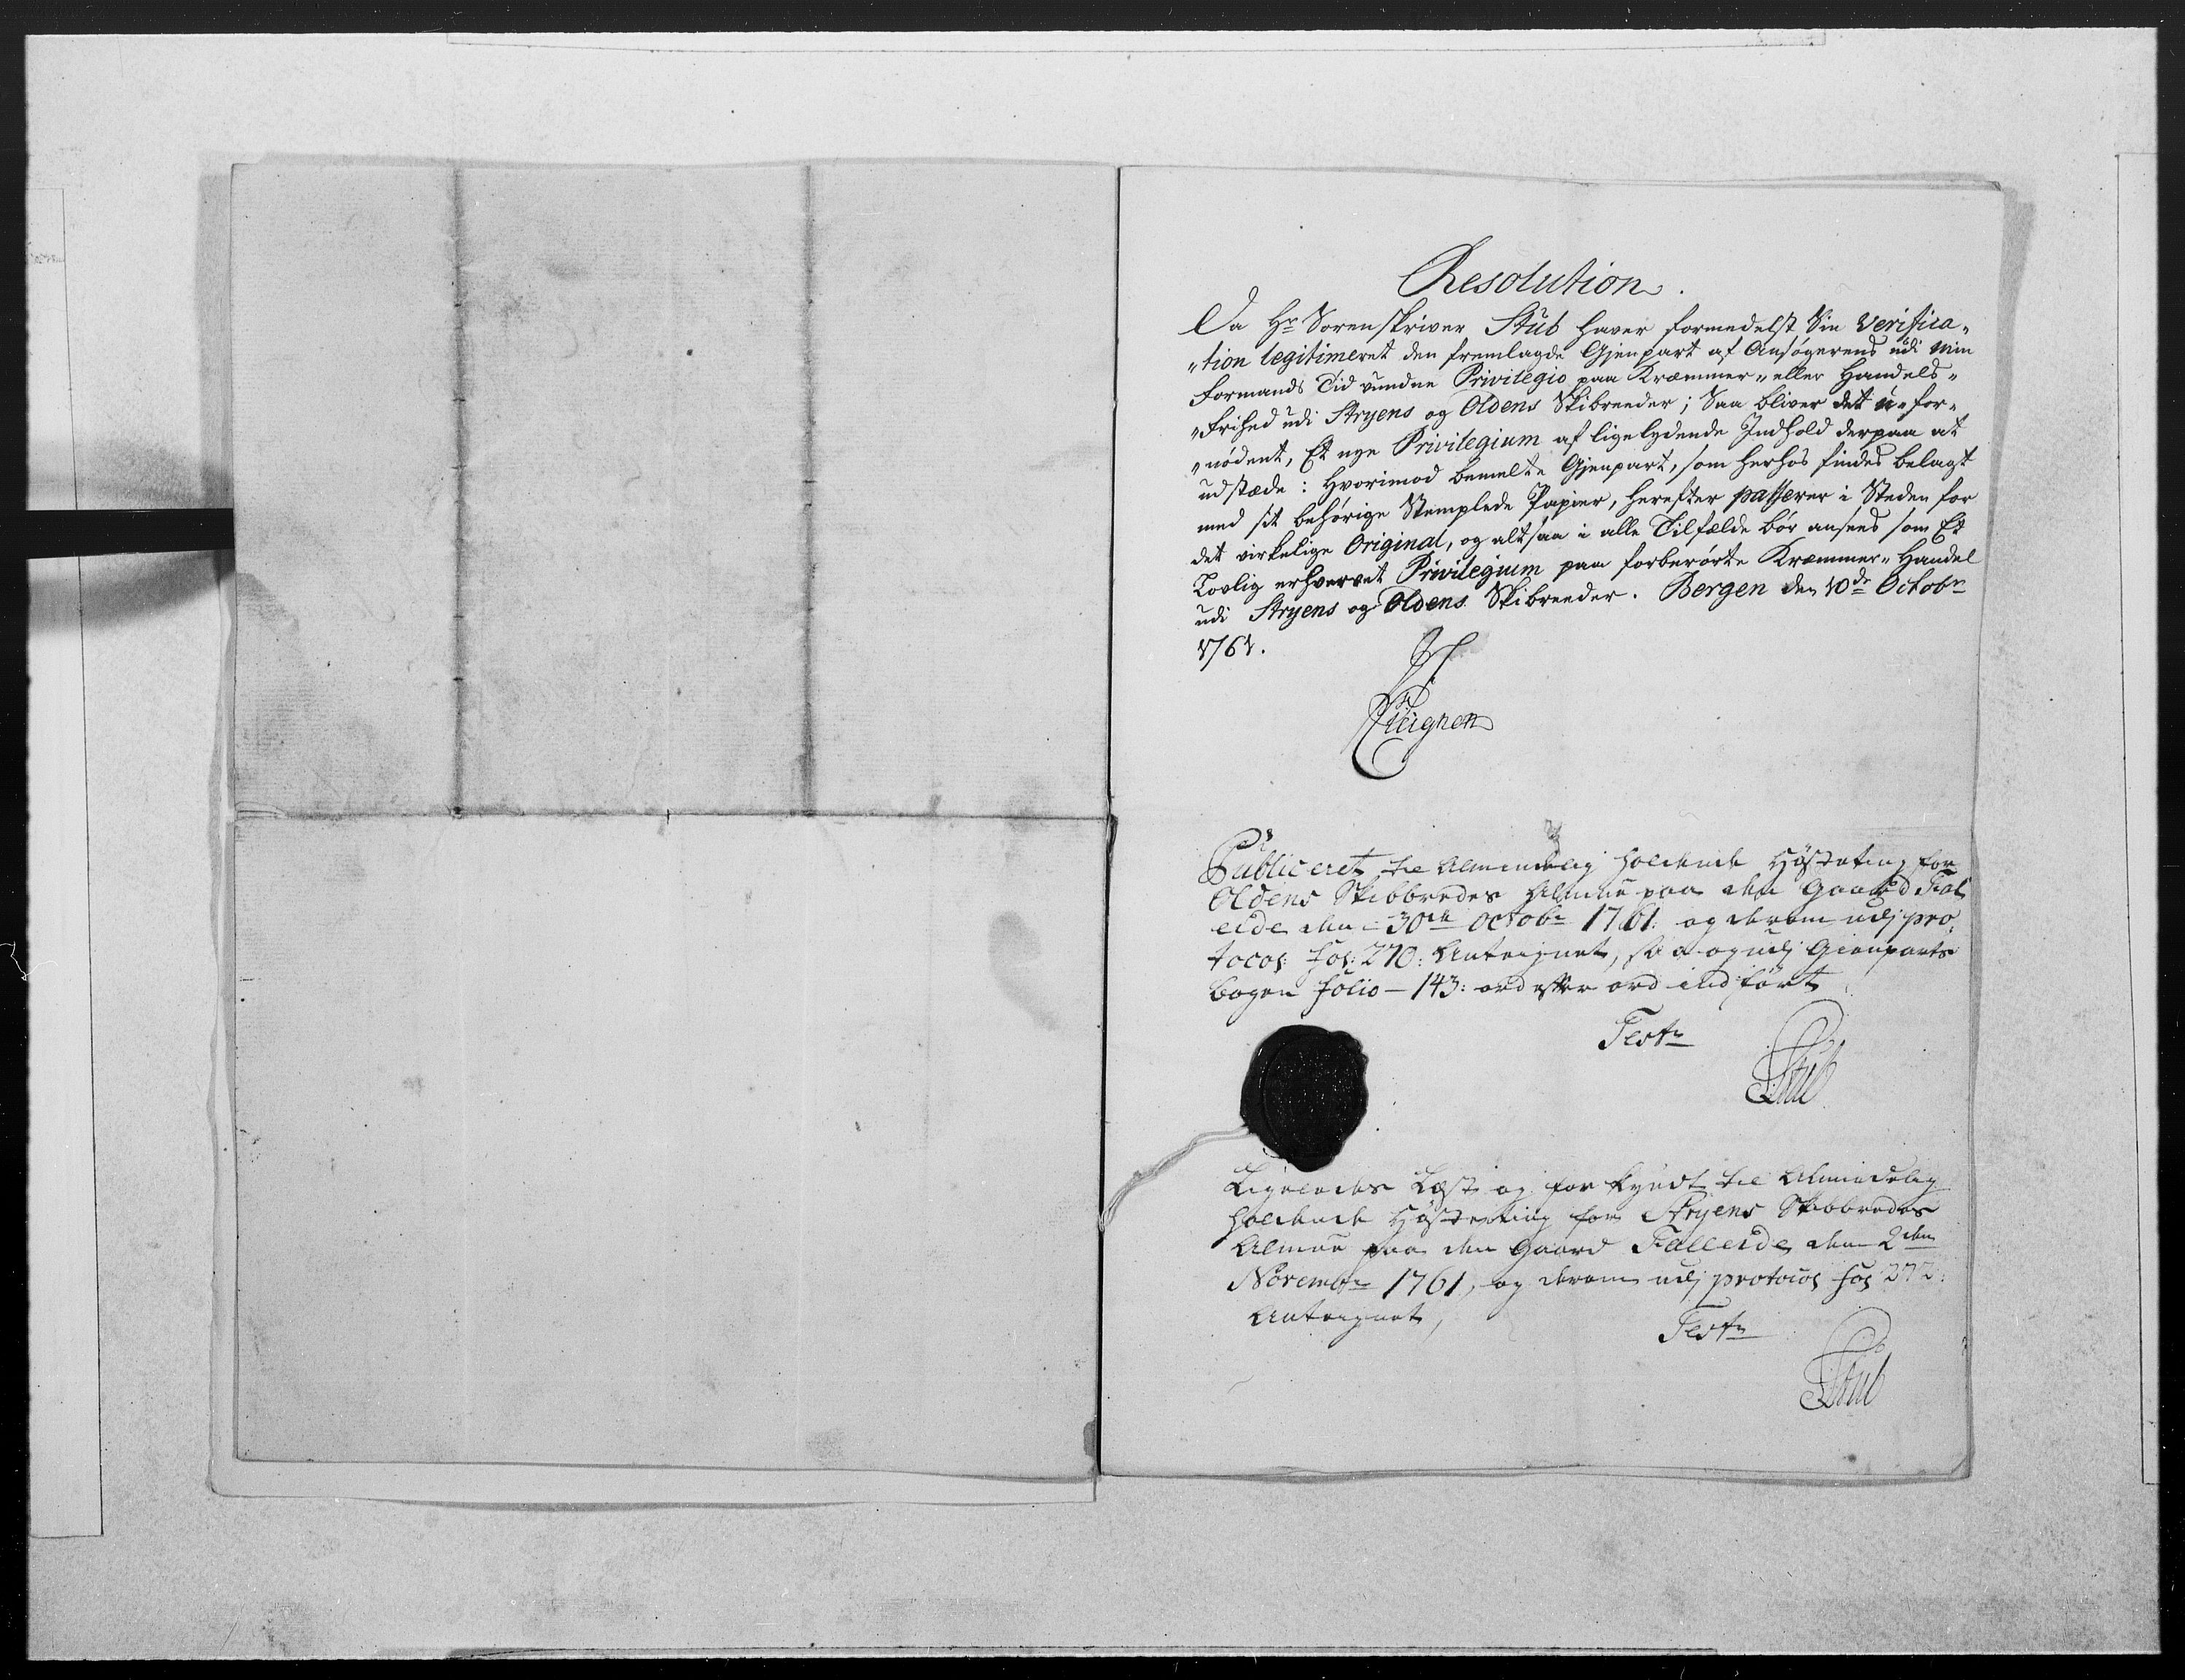 Resolution.
Da Hr Sorenskriver Stub haver formedelst Sin Verifica„
„tion legitimeret den fremlagde Gjenpart af Ansøgerens udi Min
Formands Tid vundne Privilegio paa Kræmmer„ eller Handels„
„Frihed udi Stryens og Oldens Skibreeder; Saa bliver det u„for„
„nødent, Et nye Privilegium af ligelydende Indhold derpaa at
udstæde: Hvorimod bemelte Gjenpart, som herhos findes belagt
med sit behørige Stemplede Papier, herefter passerer i Steden for
det virkelige Original, og altsaa i alle Tilfælde bør ansees som Et
Lovlig erhvervet Privilegium paa forberørte Kræmmer„Handel
udi Stryens og Oldens Skibreeder. Bergen den 10de Octobr
1761.
Publiceret til Almindelig holdende Høsteting for
Oldens Skibbredes Almue paa den Gaard Fal
eide den 30de Octobr 1761: og derom udj pro„
tocol: fol: 270: Anteignet, saa og udj Gienparts
bogen folio – 143: ord efter ord indført
Teste
Stub
Ligeledes Læst og forkyndt til Almindelig
holdende Høsteting for Stryens Skibbredes
Almue paa den Gaard Falleide den 2den
Novembr 1761, og derom udj protocol fol 272:
Anteignet,
Teste
Stub